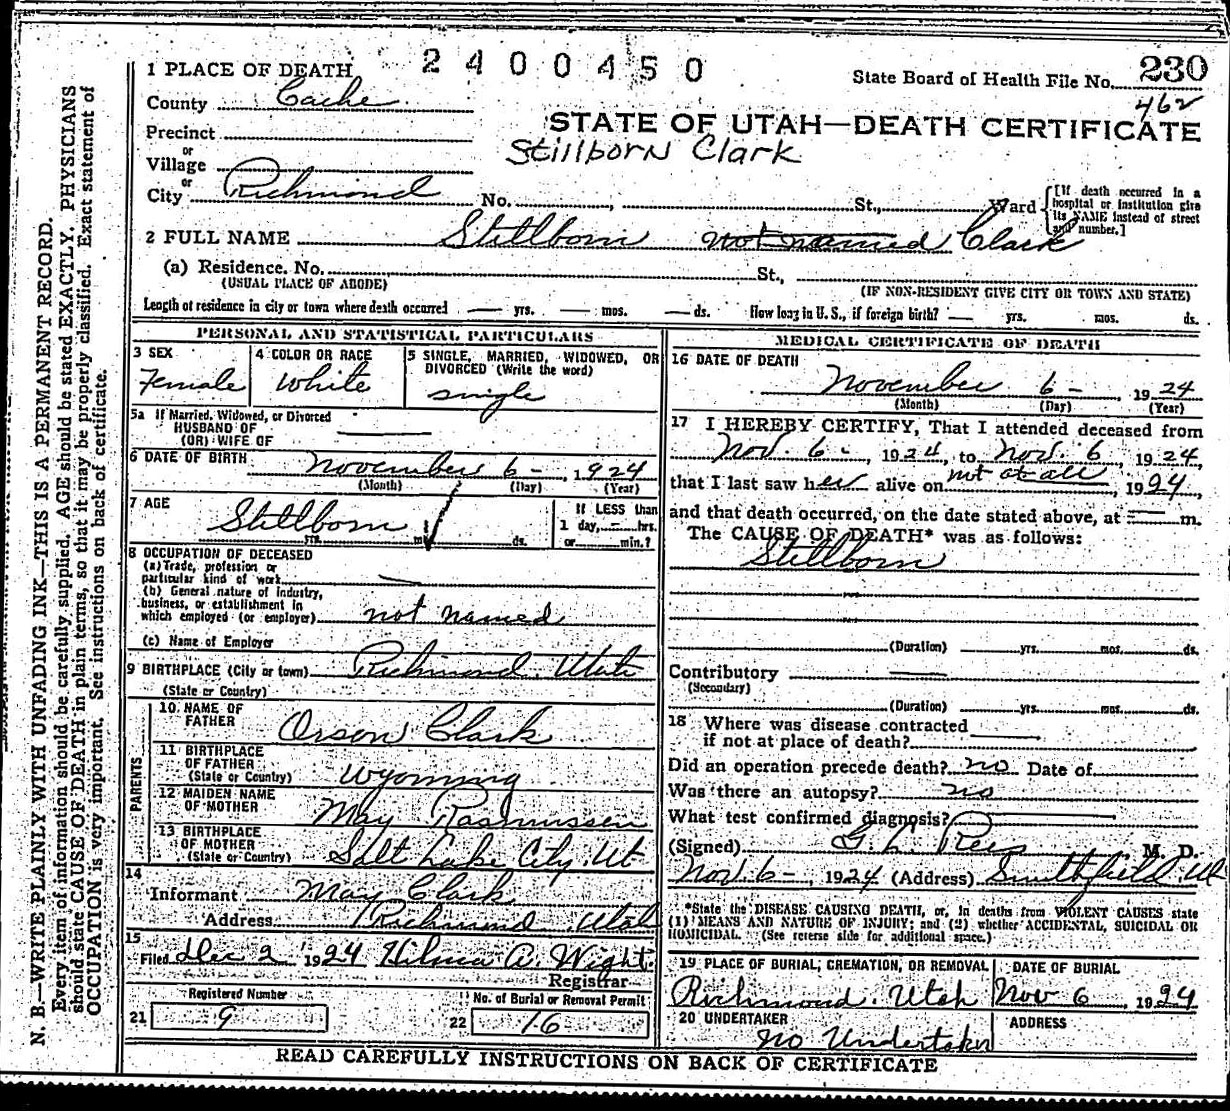 2400450
State Board of Health File No. 230
462
1 PLACE OF DEATH
County Cache
STATE OF UTAH—DEATH CERTIFICATE
Stillborn Clark
Precinct
or
Village
or
City Richmond No. , St., Ward
[If death occurred in a hospital or institution give its NAME instead of street and number.]
2 FULL NAME Stillborn not named Clark
(a) Residence. No. St.,
(USUAL PLACE OF ABODE) (IF NON-RESIDENT GIVE CITY OR TOWN AND STATE)
Length of residence in city or town where death occurred — yrs. — mos. — ds. How long in U. S., if foreign birth? — yrs. mos. ds.
PERSONAL AND STATISTICAL PARTICULARS
3 SEX
Female
4 COLOR OR RACE
White
5 SINGLE, MARRIED, WIDOWED, OR DIVORCED (Write the word)
single
5a If Married, Widowed, or Divorced
HUSBAND OF
(OR) WIFE OF
6 DATE OF BIRTH November 6 - , 1924
(Month) (Day) (Year)
7 AGE
Stillborn
yrs. m ds.
If LESS than
1 day, — hrs.
or min.?
8 OCCUPATION OF DECEASED
(a) Trade, profession or
particular kind of work —
(b) General nature of industry,
business, or establishment in
which employed (or employer) not named
(c) Name of Employer
9 BIRTHPLACE (City or town) Richmond. Utah
(State or Country)
PARENTS
10 NAME OF
FATHER
Orson Clark
11 BIRTHPLACE
OF FATHER
(State or Country) Wyoming
12 MAIDEN NAME
OF MOTHER May Rasmussen
13 BIRTHPLACE
OF MOTHER
(State or Country) Salt Lake City. Ut
14
Informant May Clark
Address Richmond Utah
15
Filed Dec 2 1924 Hilma A. Wight.
Registrar
Registered Number
21 9
No. of Burial or Removal Permit
22 16
MEDICAL CERTIFICATE OF DEATH
16 DATE OF DEATH
November 6 - , 1924
(Month) (Day) (Year)
17 I HEREBY CERTIFY, That I attended deceased from
Nov. 6 - , 1924, to Nov. 6 , 1924,
that I last saw her alive on not at all , 1924,
and that death occurred, on the date stated above, at — m.
The CAUSE OF DEATH* was as follows:
Stillborn
(Duration) yrs. mos. ds.
Contributory —
(Secondary)
(Duration) yrs. mos. ds.
18 Where was disease contracted
if not at place of death?
Did an operation precede death? no Date of
Was there an autopsy? no
What test confirmed diagnosis?
(Signed) G. L. Rees M. D.
Nov. 6 - , 1924 (Address) Smithfield Ut
*State the DISEASE CAUSING DEATH, or, in deaths from VIOLENT CAUSES state
(1) MEANS AND NATURE OF INJURY; and (2) whether ACCIDENTAL, SUICIDAL OR
HOMICIDAL. (See reverse side for additional space.)
19 PLACE OF BURIAL, CREMATION, OR REMOVAL
Richmond. Utah
DATE OF BURIAL
Nov 6 1924
20 UNDERTAKER
No Undertaker
ADDRESS
READ CAREFULLY INSTRUCTIONS ON BACK OF CERTIFICATE
N. B.—WRITE PLAINLY WITH UNFADING INK—THIS IS A PERMANENT RECORD.
Every item of information should be carefully supplied. AGE should be stated EXACTLY. PHYSICIANS
should state CAUSE OF DEATH in plain terms, so that it may be properly classified. Exact statement of
OCCUPATION is very important. See instructions on back of certificate.